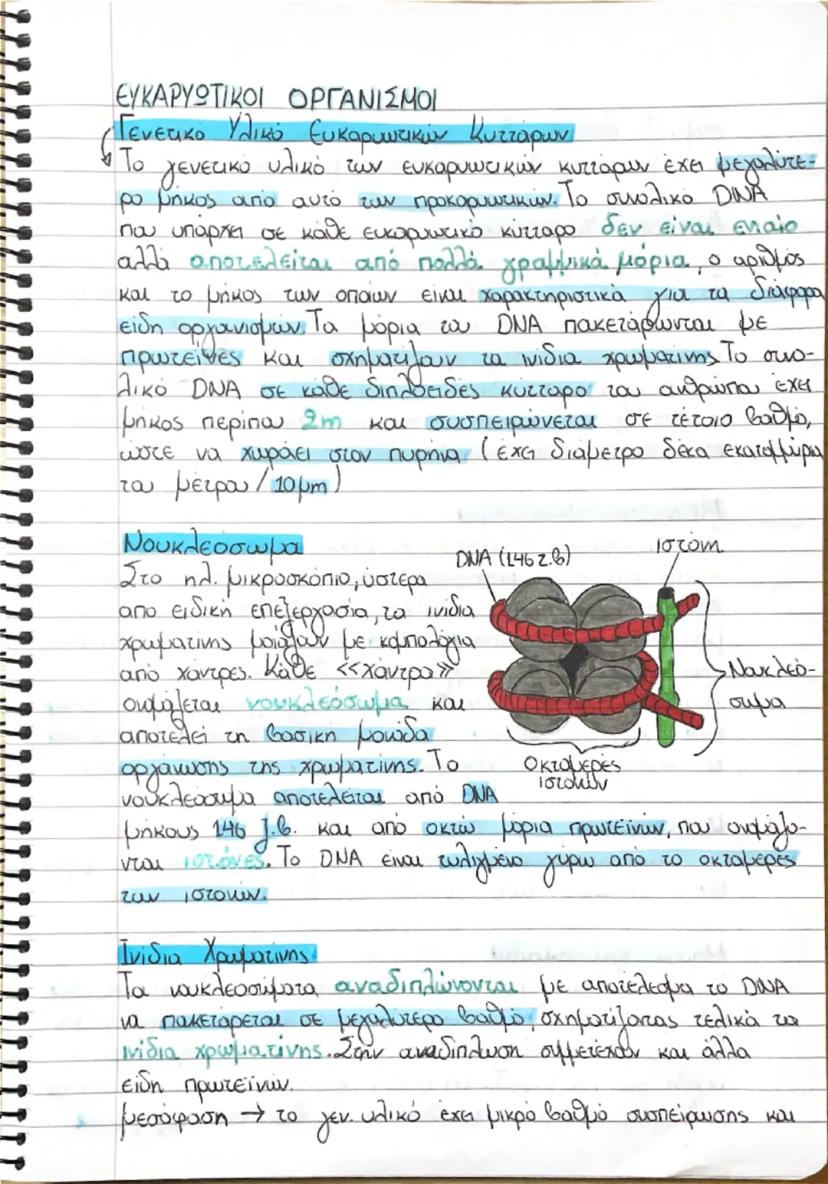 ΕΥΚΑΡΥΩΤΙΚΟΙ ΟΡΓΑΝΙΣΜΟΙ
Γενετικό Υλικό Ευκαρυωτικών Κυττάρων
Το γενετικό υλικό των ευκαρυωτικών κυττάρων έχει μεγαλύτε-
ρο μήκος από αυτό των προκαρυωτικών. Το συνολικό DNA
που υπάρχει σε κάθε ευκαρυωτικό κύτταρο δεν είναι ενιαίο
αλλά αποτελείται από πολλά γραμμικά μόρια, ο αριθμός
και το μήκος των οποίων είναι χαρακτηριστικά για τα διάφορα
είδη οργανισμών. Τα μόρια του DNA πακετάρωνται με
πρωτεΐνες και σχηματίζουν τα ινίδια χρωματίνης. Το συνο-
λικό DNA σε κάθε διπλοειδές κύτταρο του ανθρώπου έχει
μήκος περίπου 2m και συσπειρώνεται σε τέτοιο βαθμό,
ώστε να χωράει στον πυρήνα (έχει διάμετρο δέκα εκατομμύρια
του μέτρου / 10μm)
Νουκλεόσωμα
Στο ηλ. μικροσκόπιο, ύστερα
από ειδική επεξεργασία, τα ινίδια
χρωματίνης μοιάζουν με κομπολόγια
από χάντρες. Κάθε <<χάντρα>>
ονομάζεται νουκλεόσωμα και
αποτελεί τη βασική μονάδα
οργάνωσης της χρωματίνης. Το
νουκλεόσωμα αποτελείται από DNA
μήκους 146 ζ.β. και από οκτώ μόρια πρωτεϊνών, που ονομάζο-
νται ιστόνες. Το DNA είναι τυλιγμένο γύρω από το οκταμερές
των ιστονών.
DNA (146 ζ.β)
ιστόνη
Νουκλεό-
σωμα
Οκταμερές
ιστονών
Ινίδια Χρωματίνης
Τα νουκλεοσώματα αναδιπλώνονται με αποτέλεσμα το DNA
να πακετάρεται σε μεγαλύτερο βαθμό, σχηματίζοντας τελικά τα
ινίδια χρωματίνης. Στην αναδίπλωση συμμετέχουν και άλλα
είδη πρωτεϊνών.
μεσόφαση → το γεν. υλικό έχει μικρό βαθμό συσπείρωσης και